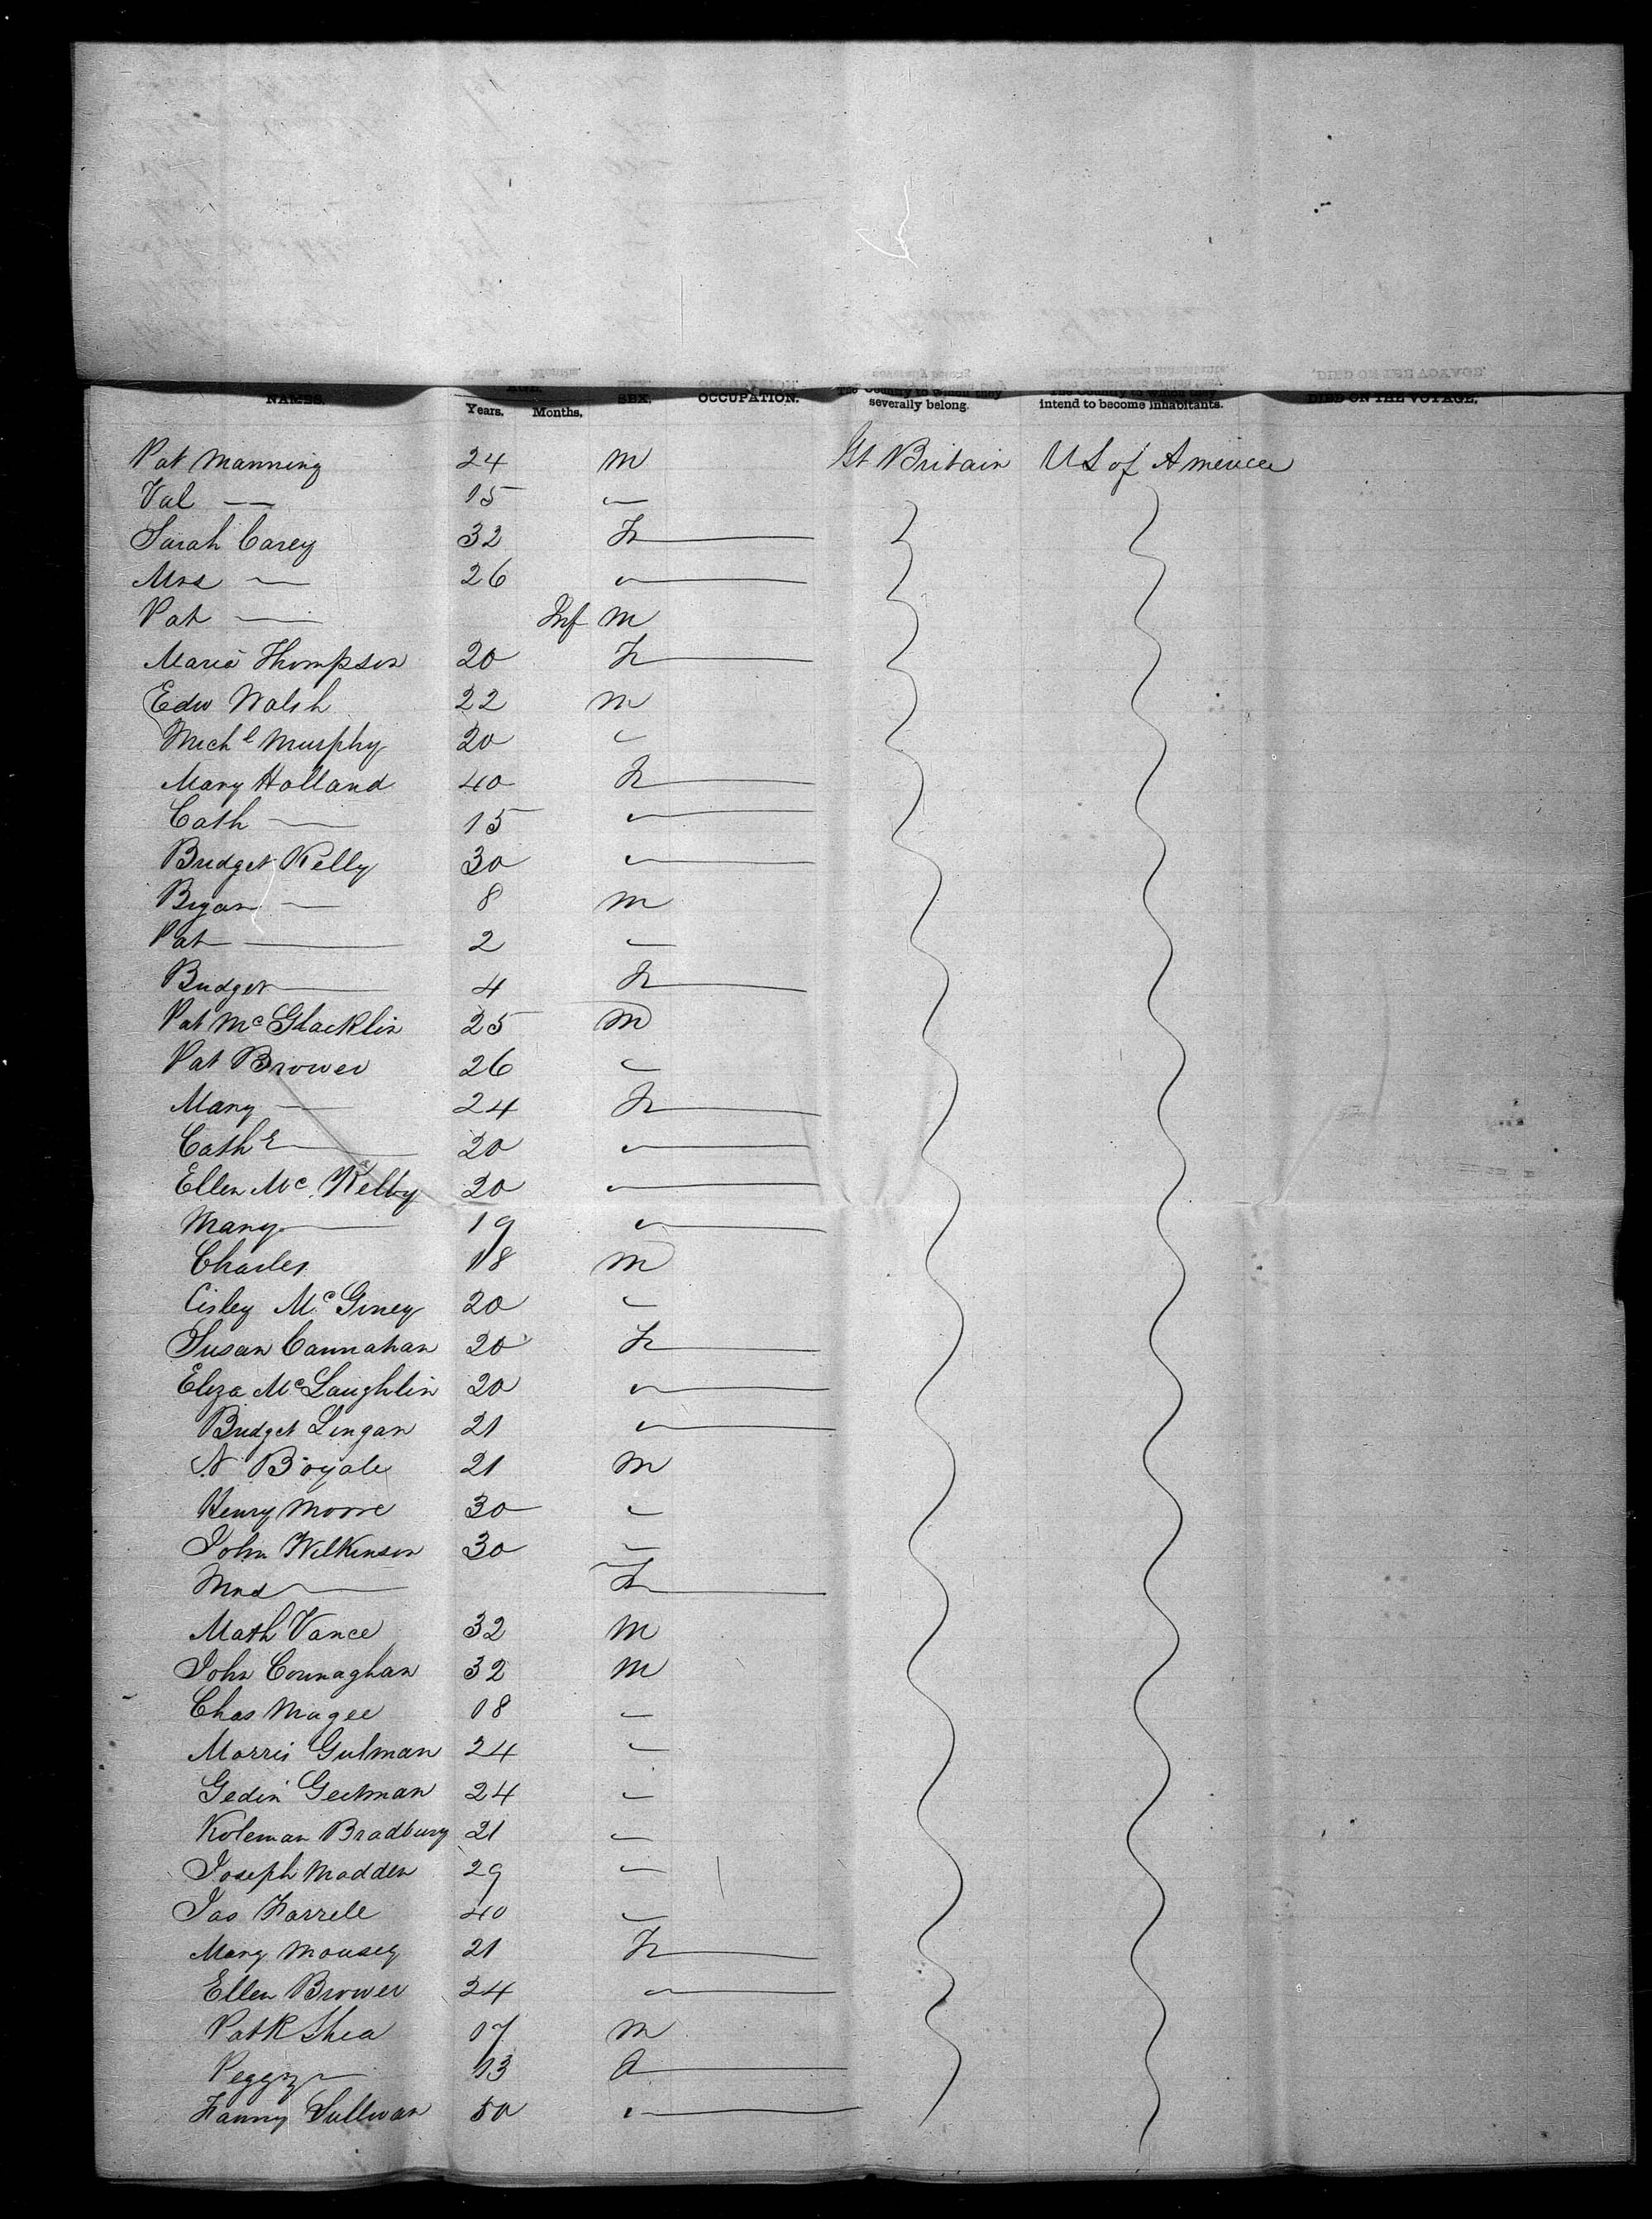 NAMES. Years. Months. SEX. OCCUPATION. The Country to which they severally belong. The Country to which they intend to become inhabitants. DIED ON THE VOYAGE.
Pat Manning 24 M Gt Britain US of America
Val — 15 "
Sarah Carey 32 F
Mrs — 26 "
Pat — Inf M
Maria Thompson 20 F
Edw Walsh 22 M
Michl Murphy 20 "
Mary Holland 40 F
Cath — 15 "
Bridget Kelly 30 "
Bryan — 8 M
Pat — 2 "
Bridget — 4 F
Pat McGlacklin 25 M
Pat Brower 26 "
Mary — 24 F
Cathe — 20 "
Ellen Mc Kelby 20 "
Mary — 19 "
Charles 18 M
Cisley McGiney 20 "
Susan Cannahan 20 F
Eliza McLaughlin 20 "
Bridget Lingan 21 "
N Boyale 21 M
Henry Moore 30 "
John Wilkinson 30 "
Mrs — F
Math Vance 32 M
John Connaghan 32 M
Chas Magee 18 "
Morris Gulman 24 "
Gedin Geetman 24 "
Koleman Bradbury 21 "
Joseph Madden 29 "
Jas Farrell 40 "
Mary Mousey 21 F
Ellen Brower 24 "
Patk Shea 17 M
Peggy — 13 F
Fanny Sullivan 50 "